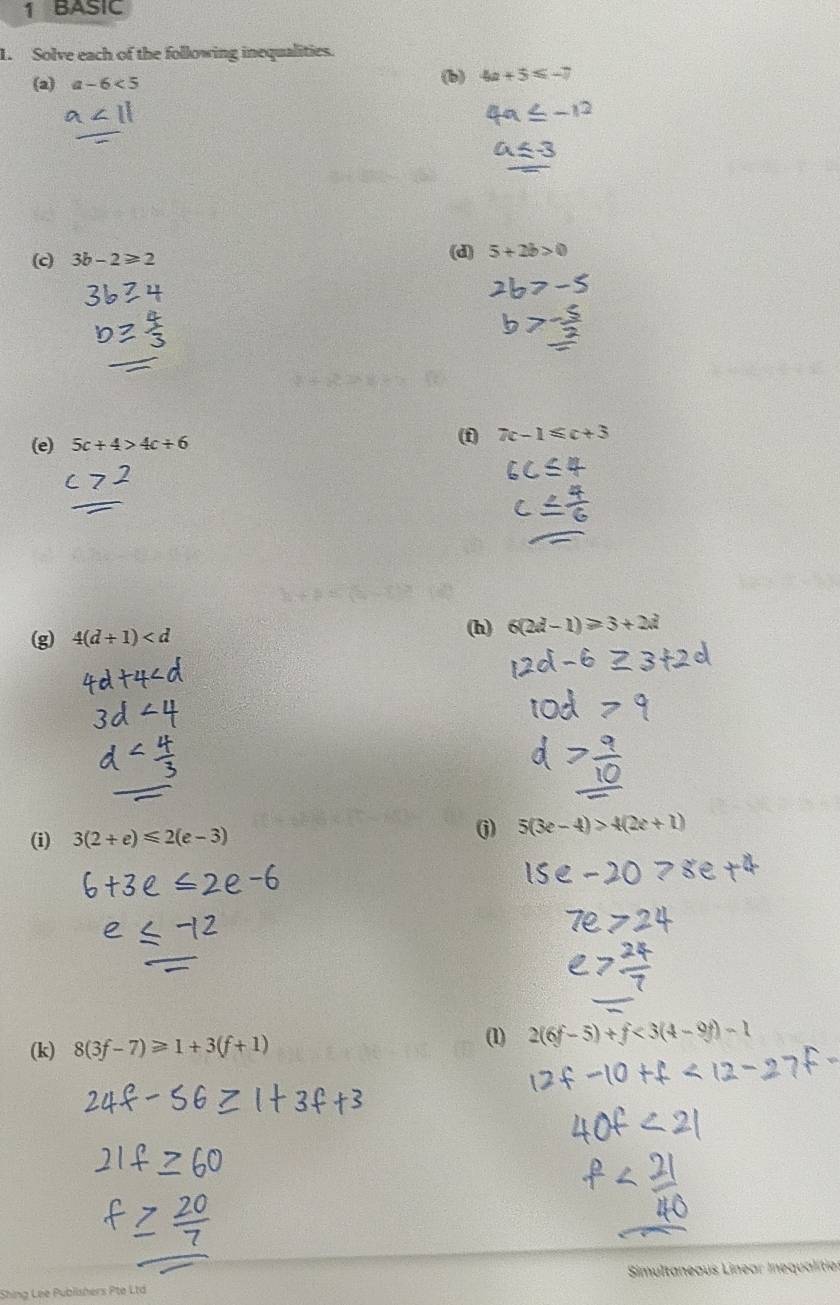 1 BASIC
1. Solve each of the following inequalities.
(a) a − 6 < 5
a < 11
(b) 4a + 5 ⩽ −7
4a ≤ −12
a ≤ -3
(c) 3b − 2 ⩾ 2
3b ≥ 4
b ≥ 4/3
(d) 5 + 2b > 0
2b > −5
b > −5/2
(e) 5c + 4 > 4c + 6
c > 2
(f) 7c − 1 ⩽ c + 3
6c ≤ 4
c ≤ 4/6
(g) 4(d + 1) < d
4d + 4 < d
3d < 4
d < 4/3
(h) 6(2d − 1) ⩾ 3 + 2d
12d − 6 ≥ 3 + 2d
10d > 9
d > 9/10
(i) 3(2 + e) ⩽ 2(e − 3)
6 + 3e ≤ 2e − 6
e ≤ −12
(j) 5(3e − 4) > 4(2e + 1)
15e − 20 > 8e + 4
7e > 24
e > 24/7
(k) 8(3f − 7) ⩾ 1 + 3(f + 1)
24f − 56 ≥ 1 + 3f + 3
21f ≥ 60
f ≥ 20/7
(l) 2(6f − 5) + f < 3(4 − 9f) − 1
12f − 10 + f < 12 − 27f −
40f < 21
f < 21/40
Simultaneous Linear Inequalitie
Shing Lee Publishers Pte Ltd